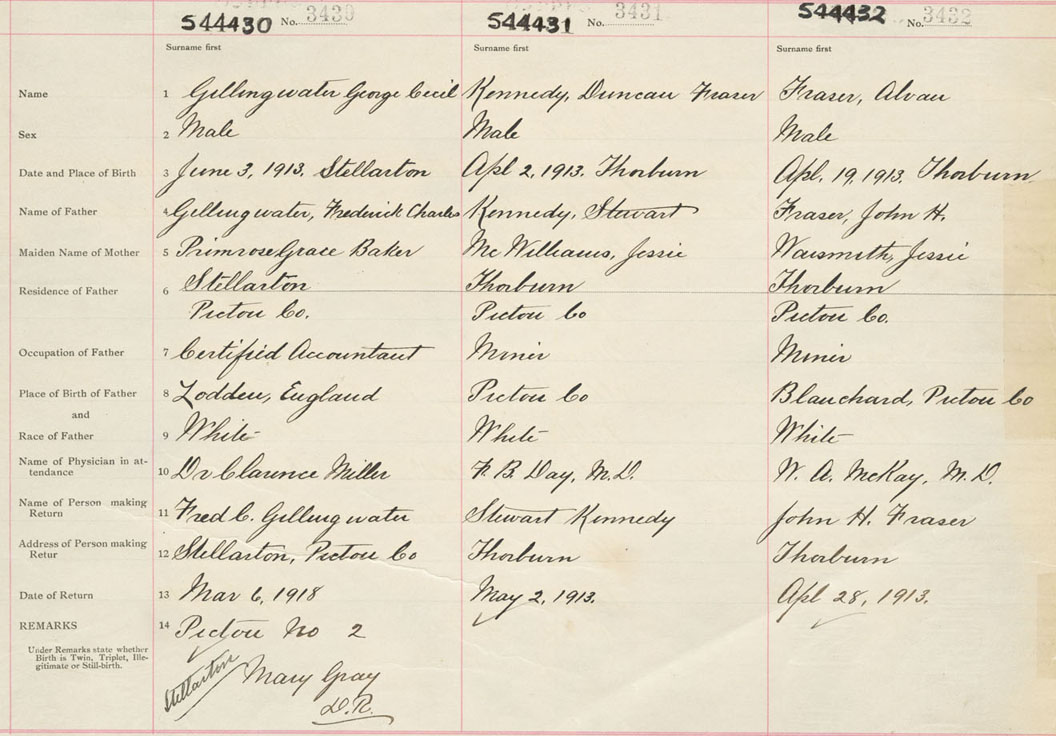 544430 No. 3430 544431 No. 3431 544432 No. 3432
Surname first Surname first Surname first
Name 1 Gillingwater George Cecil Kennedy, Duncan Fraser Fraser, Alvan
Sex 2 Male Male Male
Date and Place of Birth 3 June 3, 1913. Stellarton Apl 2, 1913. Thorburn Apl. 19, 1913. Thorburn
Name of Father 4 Gillingwater, Frederick Charles Kennedy, Stewart Fraser, John H.
Maiden Name of Mother 5 Primrose Grace Baker McWilliams, Jessie Jessie
Residence of Father 6 Stellarton Thorburn Thorburn
Pictou Co. Pictou Co Pictou Co.
Occupation of Father 7 Certified Accountant Miner Miner
Place of Birth of Father 8 Loddon, England Pictou Co Blanchard, Pictou Co
and
Race of Father 9 White White White
Name of Physician in at-
tendance 10 Dr Clarence Miller F. B. Day, M.D. W. A. McKay, M.D.
Name of Person making
Return 11 Fred C. Gillingwater Stewart Kennedy John H. Fraser
Address of Person making
Retur 12 Stellarton, Pictou Co Thorburn Thorburn
Date of Return 13 Mar 6, 1918 May 2, 1913. Apl 28, 1913.
REMARKS 14 Pictou No 2
Under Remarks state whether
Birth is Twin, Triplet, Ille-
gitimate or Still-birth.
Stellarton Mary Gray
D.R.